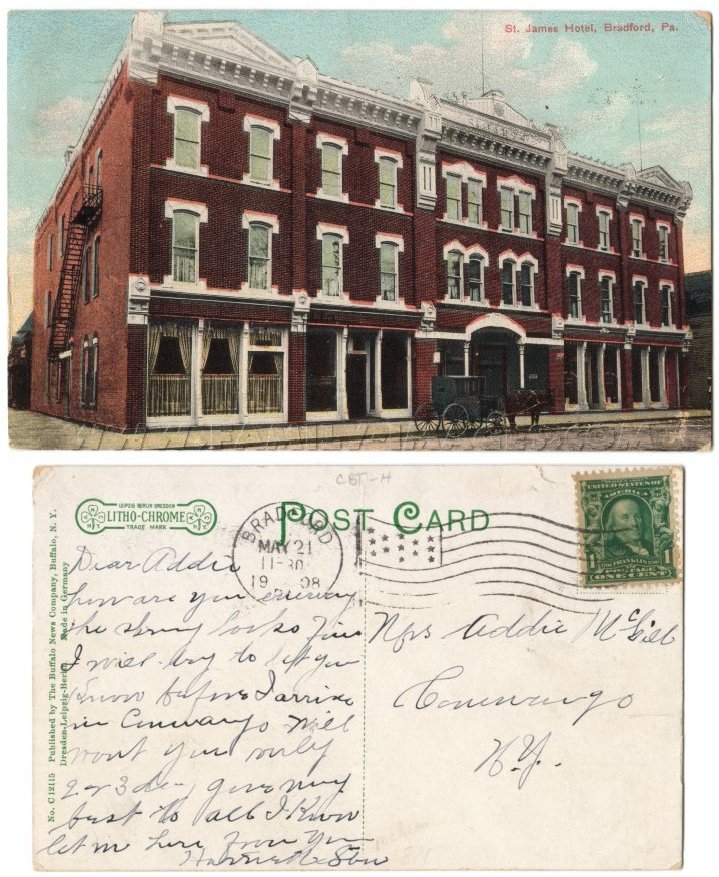 St. James Hotel, Bradford, Pa.
ST. JAMES
CBF-H
LEIPZIG BERLIN DRESDEN
LITHO-CHROME
TRADE MARK
POST CARD
BRADFORD
MAY 21
11-30
1908
UNITED STATES OF AMERICA
FRANKLIN
1 POSTAGE 1
ONE CENT
No. C 12115 Published by The Buffalo News Company, Buffalo, N. Y.
Dresden-Leipzig-Berlin Made in Germany
Dear Addie
how are you
the spring looks fine
I will try to let you
know before I arrive
in Conewango will
wont you only
2 or 3 give my
best to all I know
let me hear from you
Mrs Addie McGill
Conewango
N.Y.